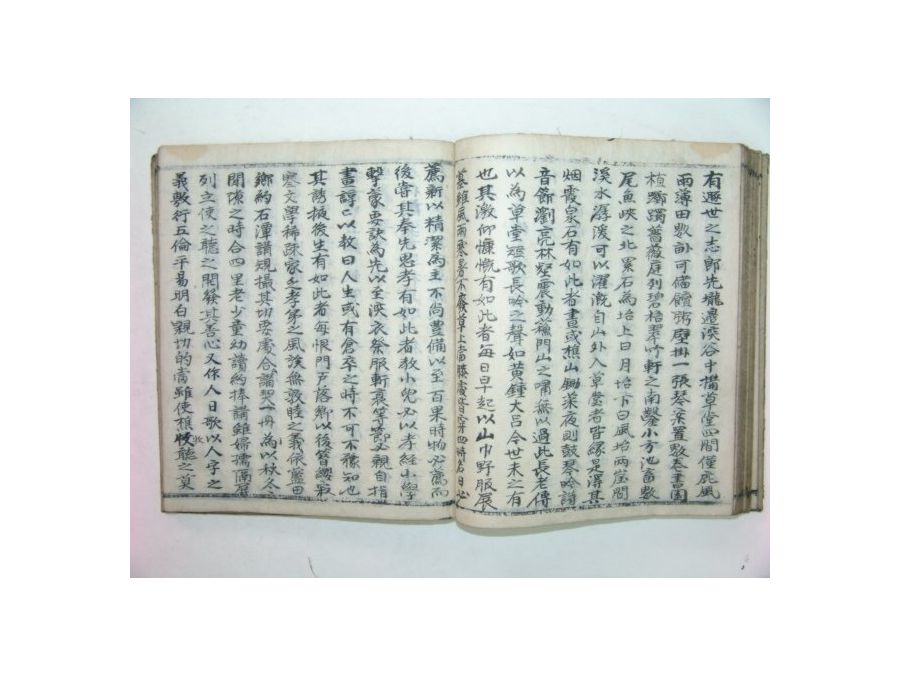 有遯世之志郎先壠邊深谷中構草堂四間僅庇風
雨薄田數畝可備饘粥壁掛一張琴架置數卷書園
植躑躅薔薇庭列碧梧翠竹軒之南鑿小方池畜數
尾魚峽之北累石為坮上曰月坮下曰風坮兩崖間
溪水潺湲可以灌漑自山外入草堂者皆緣是得其
烟霞泉石有如此者晝或樵山鋤菜夜則鼓琴吟詩
音節瀏亮林壑震動蘓門山之嘯無以過此長老傳
以為草堂短歌長吟之聲如黃鍾大呂今世未之有
也其激仰慷慨有如此者每日早起以山巾野服展
墓雖風雨寒暑不廢草上當膝處皆穿四時名日必
薦新以精潔為主不尙豊備以至百果時物必薦而
後嘗其奉先思孝有如此者敎小兒必以孝經小學
擊蒙要訣為先以至深衣祭服斬衰等節必親自指
畫諄〻以敎曰人生或有倉卒之時不可不豫知也
其誘掖後生有如此者每恨門戶落鄕以後簪纓寂
寥文學稀踈家乏孝悌之風族無敦睦之義依藍田
鄕約石潭講規撮其切要處合謄一冊為以秋冬
閒隙之時合四里老少童幼讀約捧講雖婦孺隔壁
列立使之聽之開發其善心又作人日歌以人字之
義數行五倫平易明白親切的當雖使樵牧聽之莫